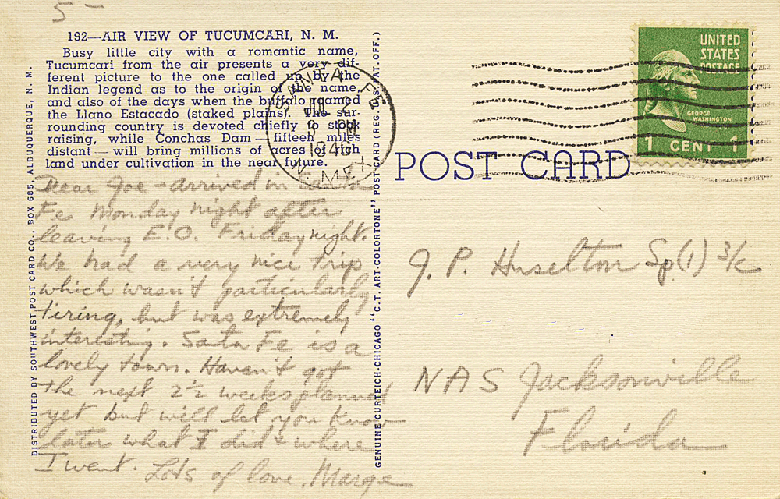 5-
192—AIR VIEW OF TUCUMCARI, N. M.
Busy little city with a romantic name,
Tucumcari from the air presents a very dif-
ferent picture to the one called up by the
Indian legend as to the origin of the name,
and also of the days when the buffalo roamed
the Llano Estacado (staked plains). The sur-
rounding country is devoted chiefly to stock
raising, while Conchas Dam — fifteen miles
distant — will bring millions of acres of rich
land under cultivation in the near future.
Dear Joe - arrived in Santa
Fe Monday night after
leaving E.O. Friday night.
We had a very nice trip
which wasn't particularly
tiring, but was extremely
interesting. Santa Fe is a
lovely town. Haven't got
the next 2½ weeks planned
yet but will let you know
later what I did & where
I went. Lots of love. Marge
DISTRIBUTED BY SOUTHWEST POST CARD CO., BOX 685, ALBUQUERQUE, N. M.
GENUINE CURTEICH-CHICAGO "C.T. ART-COLORTONE" POST CARD (REG. U.S. PAT. OFF.)
SANTA FE
N. MEX.
UNITED
STATES
POSTAGE
GEORGE
WASHINGTON
1 CENT 1
POST CARD
J. P. Huselton Sp(1) 3/c
NAS Jacksonville
Florida